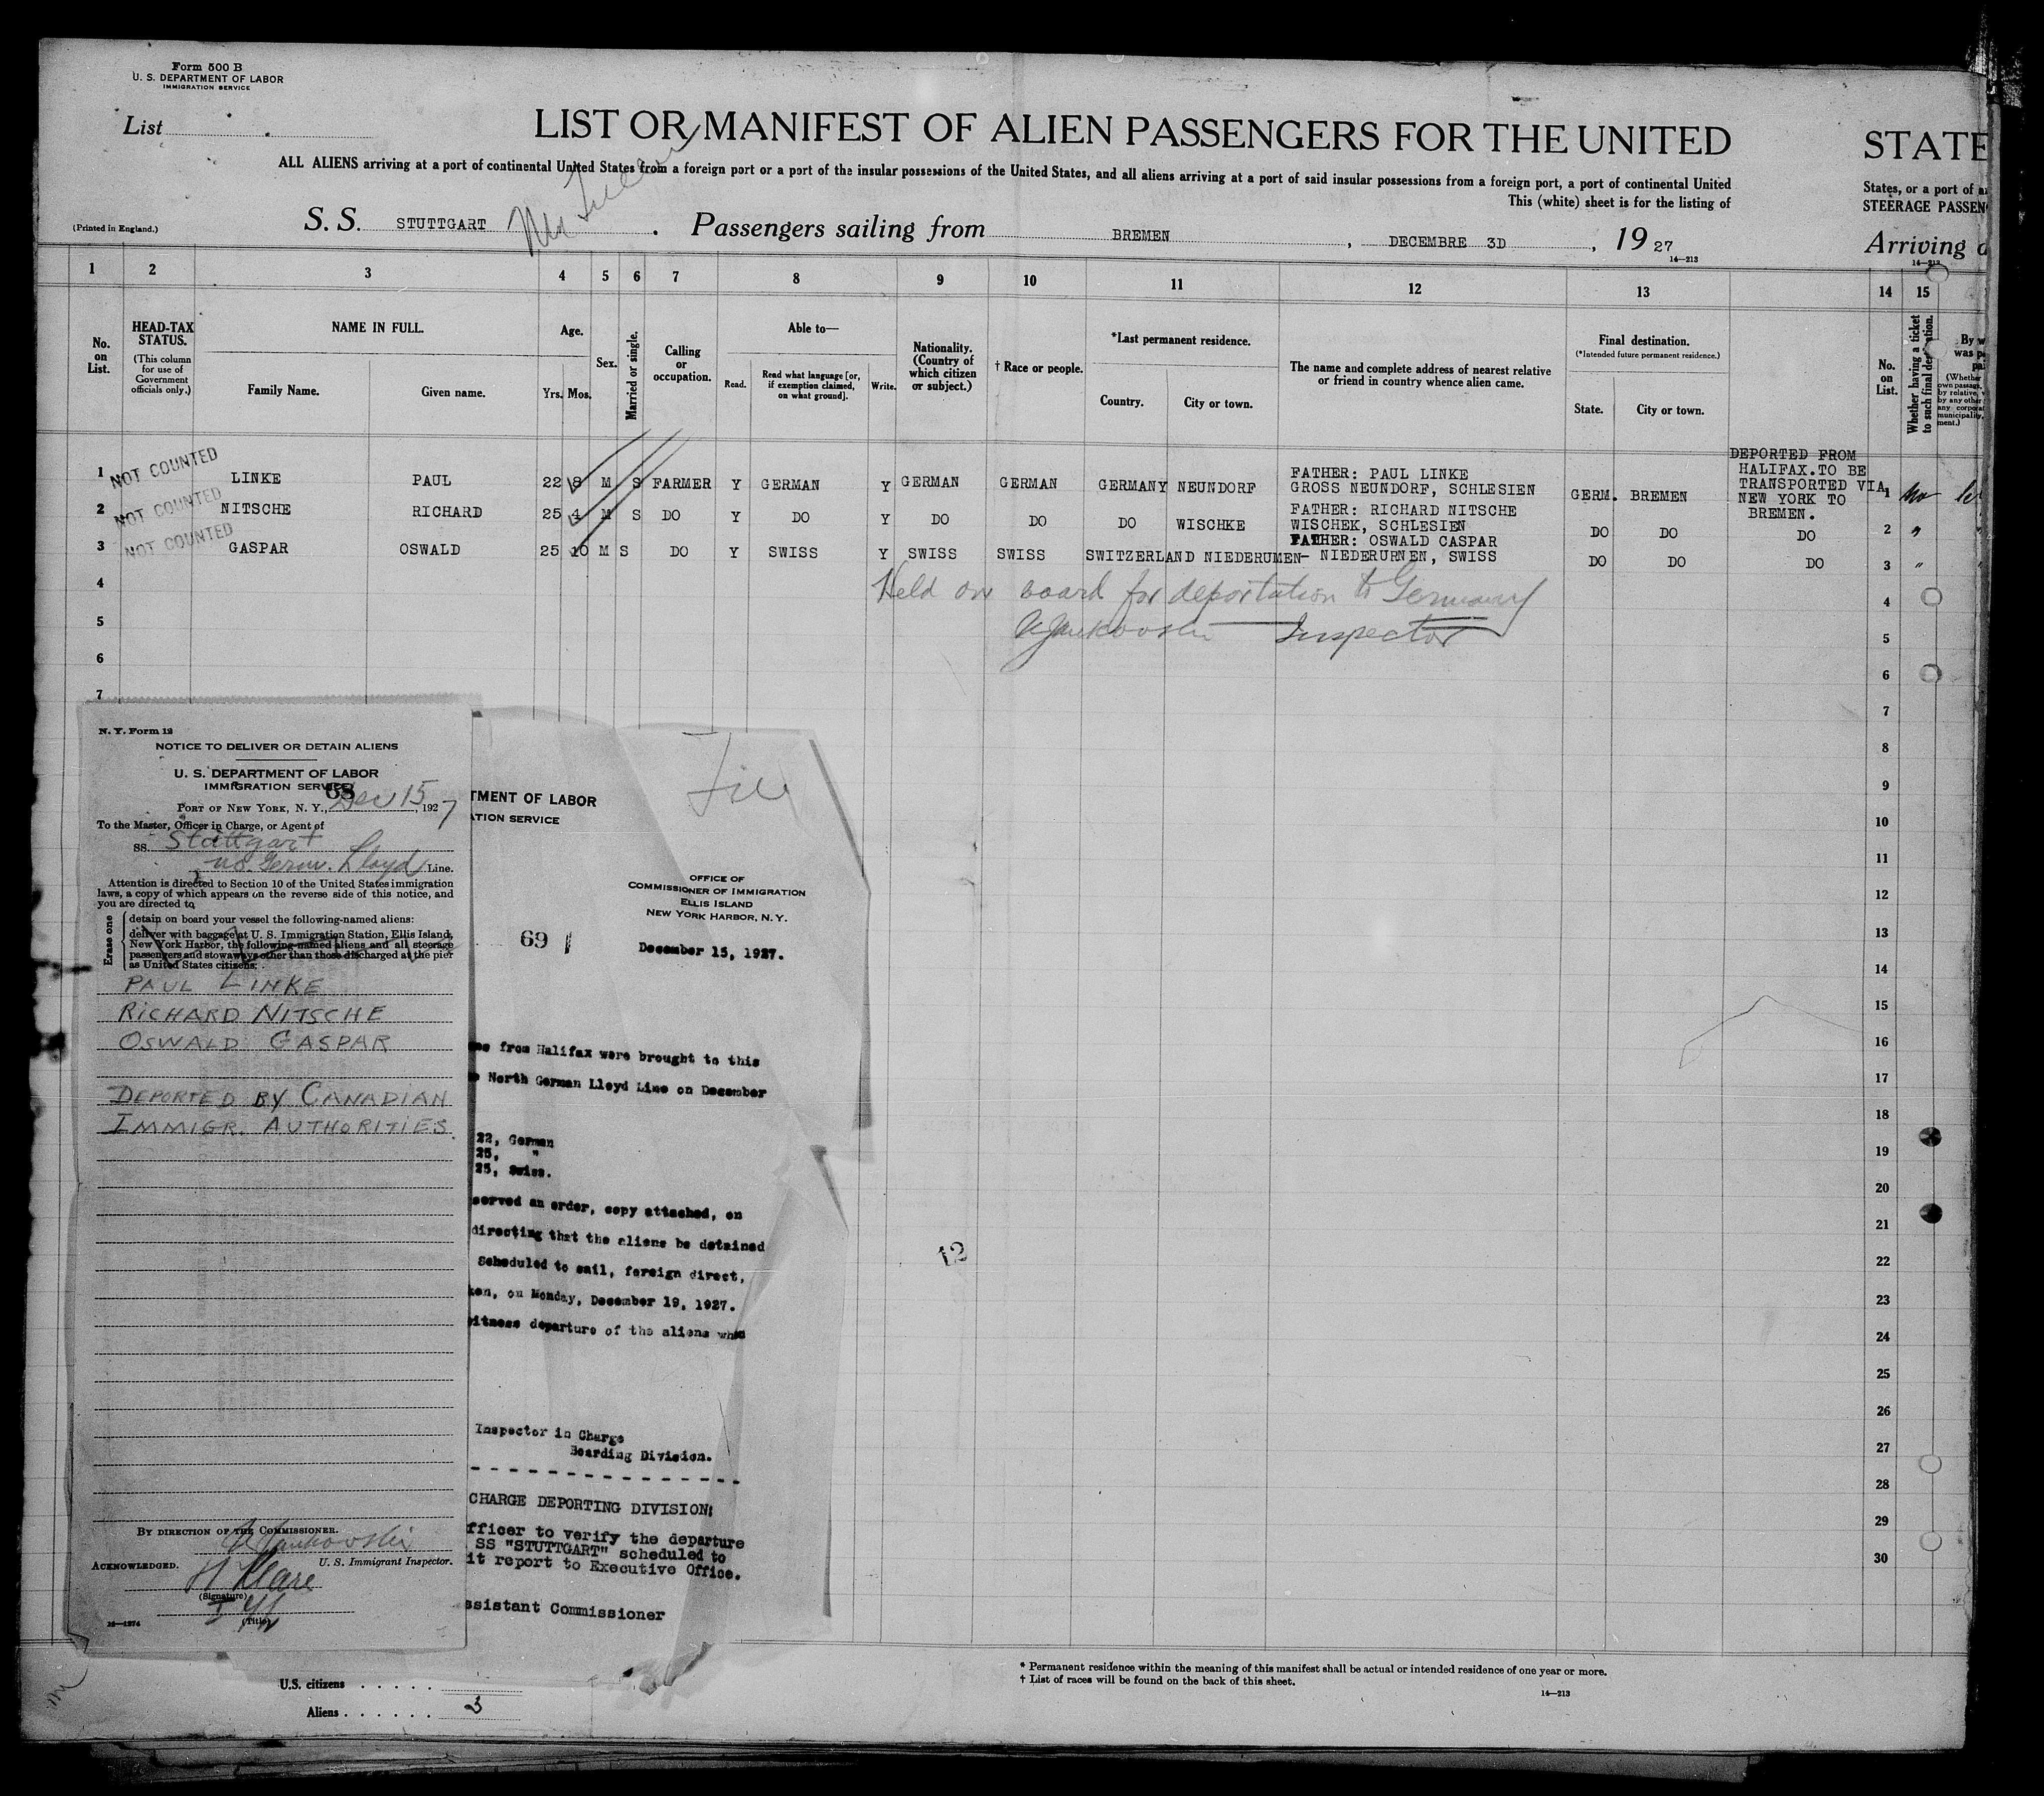 Form 500 B
U. S. DEPARTMENT OF LABOR
IMMIGRATION SERVICE
List
LIST OR MANIFEST OF ALIEN PASSENGERS FOR THE UNITED
STATE
ALL ALIENS arriving at a port of continental United States from a foreign port or a port of the insular possessions of the United States, and all aliens arriving at a port of said insular possessions from a foreign port, a port of continental United
States, or a port of
This (white) sheet is for the listing of
STEERAGE PASSEN
(Printed in England.)
S. S. STUTTGART
Passengers sailing from BREMEN, DECEMBRE 3D, 19 27
14—213
Arriving
14—213
1 2 3 4 5 6 7 8 9 10 11 12 13 14 15
No. on List.
HEAD-TAX STATUS.
(This column for use of Government officials only.)
NAME IN FULL.
Family Name. Given name.
Age.
Yrs. Mos.
Sex.
Married or single.
Calling or occupation.
Able to—
Read. Read what language [or, if exemption claimed, on what ground]. Write.
Nationality. (Country of which citizen or subject.)
† Race or people.
*Last permanent residence.
Country. City or town.
The name and complete address of nearest relative or friend in country whence alien came.
Final destination.
(*Intended future permanent residence.)
State. City or town.
No. on List.
Whether having a ticket to such final destination.
By w
was p
(Whether
own passage,
by relative,
by any other
any corporat
municipality,
ment.)
DEPORTED FROM
HALIFAX.TO BE
TRANSPORTED VIA
NEW YORK TO
BREMEN.
1 NOT COUNTED LINKE PAUL 22 M S FARMER Y GERMAN Y GERMAN GERMAN GERMANY NEUNDORF FATHER: PAUL LINKE
GROSS NEUNDORF, SCHLESIEN GERM. BREMEN 1 No
2 NOT COUNTED NITSCHE RICHARD 25 1 M S DO Y DO Y DO DO DO WISCHKE FATHER: RICHARD NITSCHE
WISCHEK, SCHLESIEN DO DO DO 2 "
3 NOT COUNTED GASPAR OSWALD 25 10 M S DO Y SWISS Y SWISS SWISS SWITZERLAND NIEDERUMEN— FATHER: OSWALD CASPAR
NIEDERURNEN, SWISS DO DO DO 3 "
Held on board for deportation to Germany
Inspector
4 4
5 5
6 6
7 7
8
9
10
11
12
13
14
15
16
17
18
19
20
21
22
23
24
25
26
27
28
29
30
12
N. Y. Form 12
NOTICE TO DELIVER OR DETAIN ALIENS
U. S. DEPARTMENT OF LABOR
IMMIGRATION SERVICE
68
PORT OF NEW YORK, N. Y., Dec 15, 1927
To the Master, Officer in Charge, or Agent of
SS. Stuttgart
no. Germ. Lloyd Line.
Attention is directed to Section 10 of the United States immigration
laws, a copy of which appears on the reverse side of this notice, and
you are directed to
Erase one
detain on board your vessel the following-named aliens:
deliver with baggage at U. S. Immigration Station, Ellis Island,
New York Harbor, the following-named aliens and all steerage
passengers and stowaways other than those discharged at the pier
as United States citizens:
PAUL LINKE
RICHARD NITSCHE
OSWALD GASPAR
DEPORTED BY CANADIAN
IMMIGR. AUTHORITIES.
BY DIRECTION OF THE COMMISSIONER.
U. S. Immigrant Inspector.
ACKNOWLEDGED.
(Signature)
(Title)
File
TMENT OF LABOR
ATION SERVICE
OFFICE OF
COMMISSIONER OF IMMIGRATION
ELLIS ISLAND
NEW YORK HARBOR, N. Y.
69
December 15, 1927.
from Halifax were brought to this
North German Lloyd Line on December
22, German
25, "
25, Swiss.
served an order, copy attached, on
directing that the aliens be detained
Scheduled to sail, foreign direct,
ken, on Monday, December 19, 1927.
witness departure of the aliens when
Inspector in Charge
Boarding Division.
CHARGE DEPORTING DIVISION:
fficer to verify the departure
SS "STUTTGART" scheduled to
it report to Executive Office.
ssistant Commissioner
U.S. citizens
Aliens 3
* Permanent residence within the meaning of this manifest shall be actual or intended residence of one year or more.
† List of races will be found on the back of this sheet.
14—213